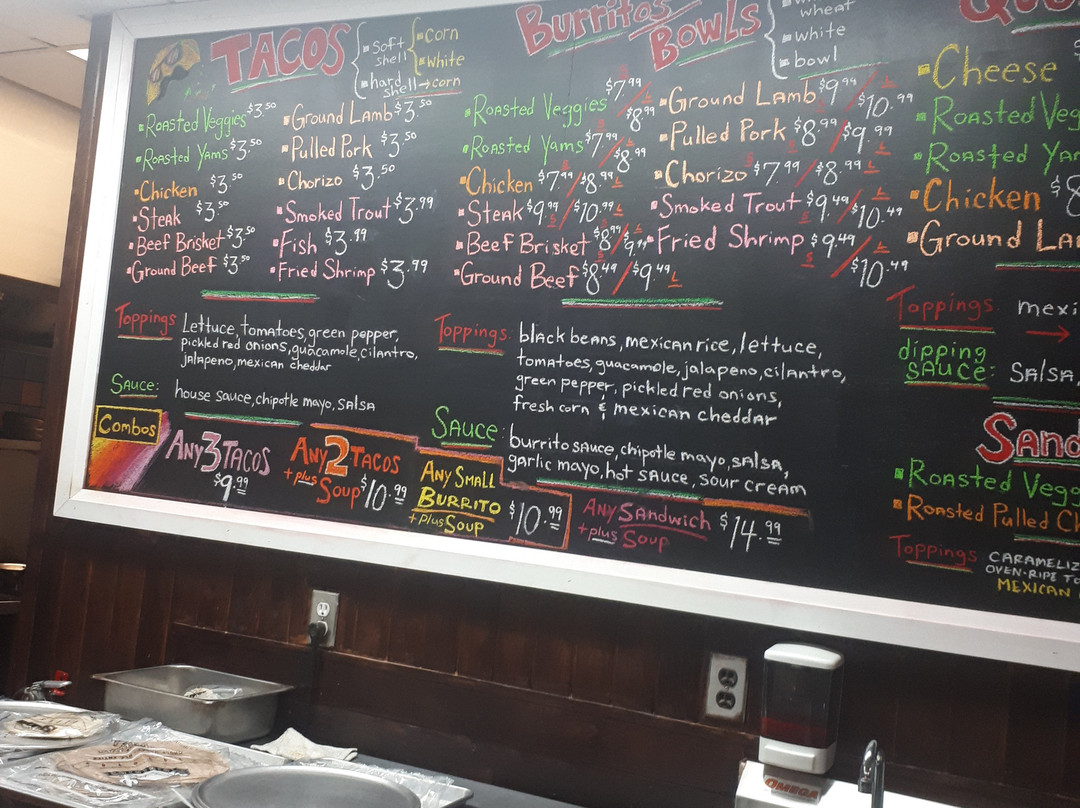 TACOS
soft shell
corn
white
hard shell → corn
Roasted Veggies $3.50
Roasted Yams $3.50
Chicken $3.50
Steak $3.50
Beef Brisket $3.50
Ground Beef $3.50
Ground Lamb $3.50
Pulled Pork $3.50
Chorizo $3.50
Smoked Trout $3.99
Fish $3.99
Fried Shrimp $3.99
Toppings
Lettuce, tomatoes, green pepper,
pickled red onions, guacamole, cilantro,
jalapeno, mexican cheddar
Sauce:
house sauce, chipotle mayo, salsa
Combos
Any 3 Tacos
$9.99
Any 2 Tacos
+ plus Soup $10.99
Any Small
Burrito
+ plus Soup
$10.99
Any Sandwich
+ plus Soup
$14.99
Burritos
Bowls
wheat
white
bowl
Roasted Veggies $7.99 / $8.99 L
Roasted Yams $7.99 / $8.99
Chicken $7.99 / $8.99 L
Steak $9.99 / $10.99 L
Beef Brisket $8.99 / $9.99 L
Ground Beef $8.49 / $9.49 L
Ground Lamb $9.99 / $10.99 L
Pulled Pork $8.99 / $9.99 L
Chorizo $7.99 / $8.99 L
Smoked Trout $9.49 / $10.49 L
Fried Shrimp $9.49 / $10.49 L
Toppings:
black beans, mexican rice, lettuce,
tomatoes, guacamole, jalapeno, cilantro,
green pepper, pickled red onions,
fresh corn & mexican cheddar
Sauce:
burrito sauce, chipotle mayo, salsa,
garlic mayo, hot sauce, sour cream
Cheese
Roasted Veg
Roasted Yam
Chicken $8
Ground La
Toppings: mexi
dipping
sauce: salsa,
Sand
Roasted Vegg
Roasted Pulled Ch
Toppings
CARAMELIZ
OVEN-RIPE TO
MEXICAN
OMEGA